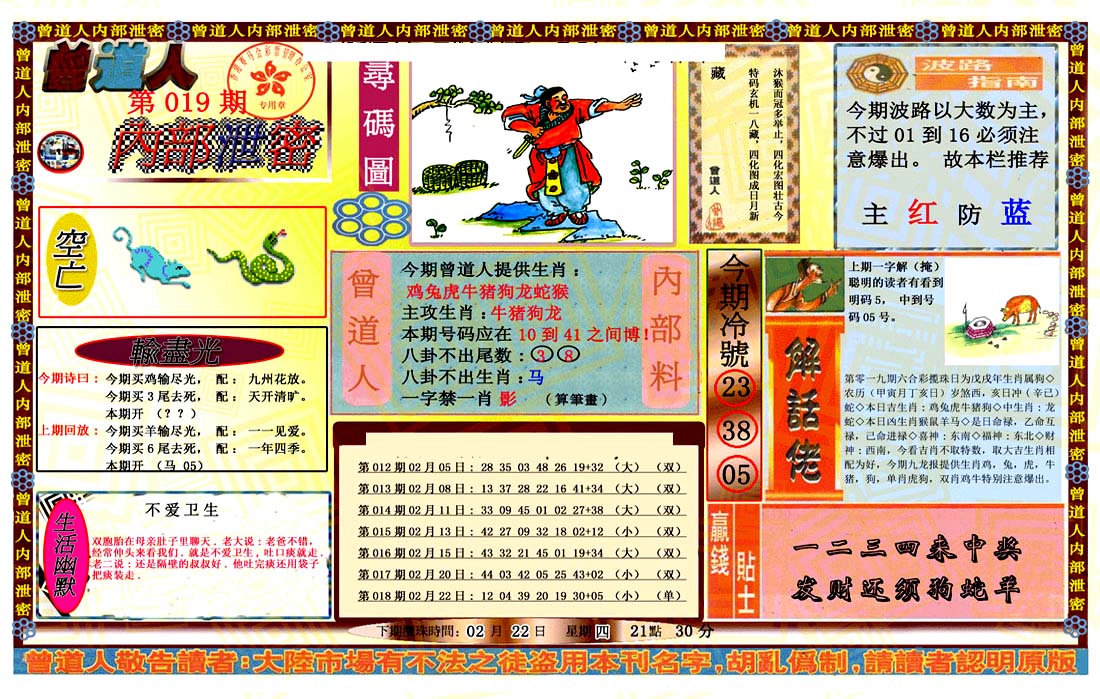 曾道人内部泄密 曾道人内部泄密 曾道人内部泄密 曾道人内部泄密 曾道人内部泄密 曾道人内部泄密 曾道人内部泄密
曾道人
第 019 期
内部泄密
专用章
尋碼圖
沐猴而冠多举止，四化宏图壮古今
特码玄机一八藏，四化图成日月新
藏
曾道人
波路
指南
今期波路以大数为主，
不过 01 到 16 必须注
意爆出。 故本栏推荐
主 红 防 蓝
空亡
曾道人
内部料
今期曾道人提供生肖：
鸡兔虎牛猪狗龙蛇猴
主攻生肖：牛猪狗龙
本期号码应在 10 到 41 之间博！
八卦不出尾数：③ ⑧
八卦不出生肖：马
一字禁一肖 影 （算筆畫）
今期冷號
23
38
05
上期一字解（掩）
聪明的读者有看到
明码 5， 中到号
码 05 号。
解話佬
第零一九期六合彩搅珠日为戊戌年生肖属狗◇
农历（甲寅月丁亥日）岁煞西，亥日冲（辛已）
蛇◇本日吉生肖：鸡兔虎牛猪狗◇中生肖：龙
蛇◇本日凶生肖猴鼠羊马◇是日命禄，乙命互
禄，己命进禄◇喜神：东南◇福神：东北◇财
神：西南，今看吉肖不取特数，取大吉生肖相
配为好，今期九龙报提供生肖鸡，兔，虎，牛
猪，狗，单肖虎狗，双肖鸡牛特别注意爆出。
輸盡光
今期诗曰：今期买鸡输尽光， 配： 九州花放。
今期买 3 尾去死， 配： 天开清旷。
本期开 （？？）
上期回放：今期买羊输尽光， 配： 一一见爱。
今期买 6 尾去死， 配： 一年四季。
本期开 （马 05）
生活幽默
不爱卫生
双胞胎在母亲肚子里聊天．老大说：老爸不错，
经常伸头来看我们．就是不爱卫生，吐口痰就走．
老二说：还是隔壁的叔叔好．他吐完痰还用袋子
把痰装走．
第 012 期 02 月 05 日： 28 35 03 48 26 19+32 （大） （双）
第 013 期 02 月 08 日： 13 37 28 22 16 41+34 （大） （双）
第 014 期 02 月 11 日： 33 09 45 01 02 27+38 （大） （双）
第 015 期 02 月 13 日： 42 27 09 32 18 02+12 （小） （双）
第 016 期 02 月 15 日： 43 32 21 45 01 19+34 （大） （双）
第 017 期 02 月 20 日： 44 03 42 05 25 43+02 （小） （双）
第 018 期 02 月 22 日： 12 04 39 20 19 30+05 （小） （单）
贏錢
貼士
一二三四来中奖
发财还须狗蛇羊
下期攪珠時間：02 月 22 日 星期 四 21 點 30 分
曾道人敬告讀者：大陸市場有不法之徒盗用本刊名字，胡亂僞制，請讀者認明原版